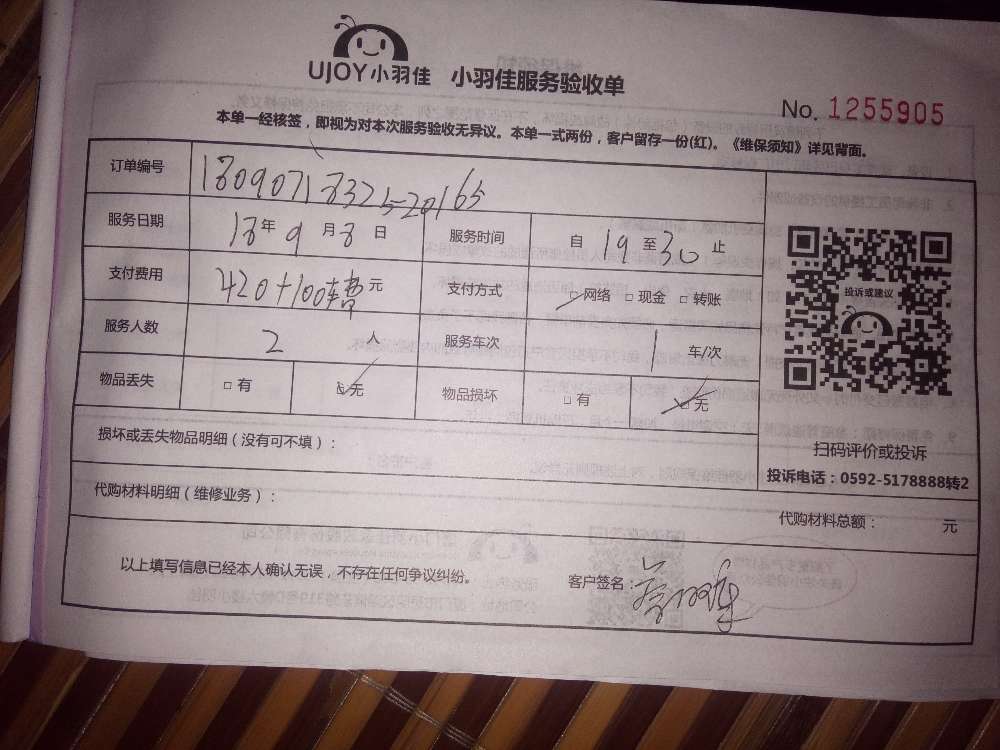 UJOY小羽佳 小羽佳服务验收单
No. 1255905
本单一经核签，即视为对本次服务验收无异议。本单一式两份，客户留存一份(红)。《维保须知》详见背面。
订单编号
服务日期 18年9月8日 服务时间 自19至30止
支付费用 420+100 元 支付方式 □网络 □现金 □转账
投诉或建议
服务人数 2人 服务车次 1车/次
物品丢失 □有 □无 物品损坏 □有 □无
损坏或丢失物品明细（没有可不填）：
扫码评价或投诉
投诉电话：0592-5178888转2
代购材料明细（维修业务）：
代购材料总额： 元
以上填写信息已经本人确认无误，不存在任何争议纠纷。 客户签名：